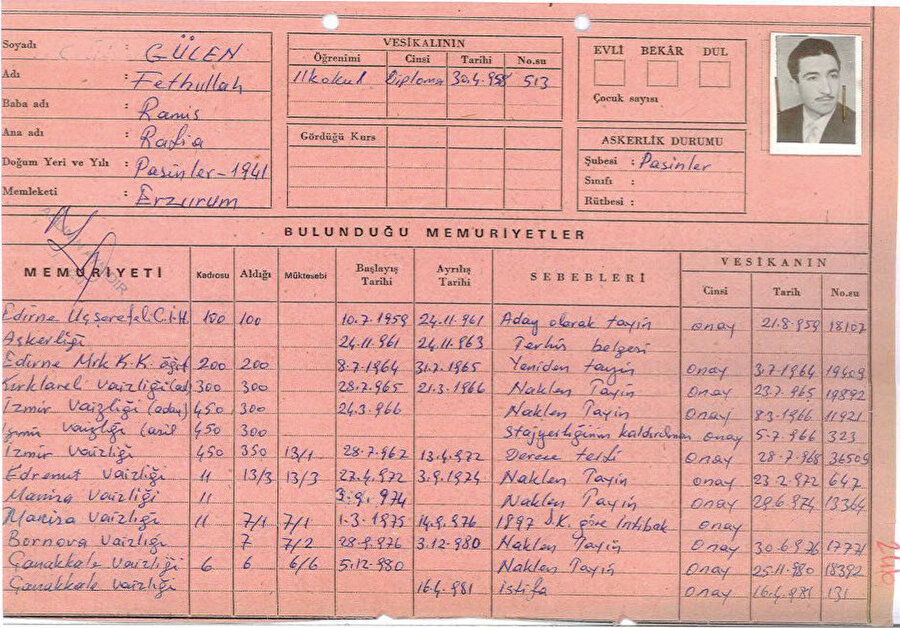 Soyadı : GÜLEN
Adı : Fethullah
Baba adı : Ramis
Ana adı : Rafia
Doğum Yeri ve Yılı : Pasinler-1941
Memleketi : Erzurum
VESİKALININ
Öğrenimi Cinsi Tarihi No.su
İlkokul Diploma 30.4.958 513
Gördüğü Kurs
EVLİ BEKÂR DUL
Çocuk sayısı
ASKERLİK DURUMU
Şubesi : Pasinler
Sınıfı :
Rütbesi :
BULUNDUĞU MEMURİYETLER
MEMURİYETİ Kadrosu Aldığı Müktesebi Başlayış Tarihi Ayrılış Tarihi SEBEBLERİ VESİKANIN
Cinsi Tarih No.su
Edirne Üçşerefeli C.İ.H 100 100 10.7.1959 24.11.961 Aday olarak tayin onay 21.8.959 18107
Askerliği 24.11.961 24.11.963 Terhis belgesi
Edirne Mrk K.K. öğrt 200 200 8.7.1964 31.7.1965 Yeniden tayin onay 3.7.1964 19409
Kırklareli Vaizliği (ad) 300 300 28.7.965 21.3.1966 Naklen Tayin onay 23.7.965 19892
İzmir Vaizliği (aday) 450 300 24.3.966 Naklen Tayin onay 8.3.1966 11921
İzmir Vaizliği (asil 450 300 Stajyerliğinin kaldırılması onay 5.7.966 323
İzmir Vaizliği 450 350 13/1 28.7.967 13.4.972 Derece terfi onay 28.7.968 36509
Edremit Vaizliği 11 13/3 13/3 27.4.972 3.9.1974 Naklen Tayin onay 23.2.972 647
Manisa Vaizliği 11 3.9.974 Naklen Tayin onay 29.6.974 13364
Manisa Vaizliği 11 7/1 7/1 1.3.1975 14.9.976 1897 S.K. göre İntibak onay
Bornova Vaizliği 7 7/2 28.9.976 3.12.980 Naklen Tayin onay 30.6.976 17771
Çanakkale Vaizliği 6 6 6/6 5.12.980 Naklen Tayin onay 25.11.980 18392
Çanakkale Vaizliği 16.4.981 istifa onay 16.4.981 131
246